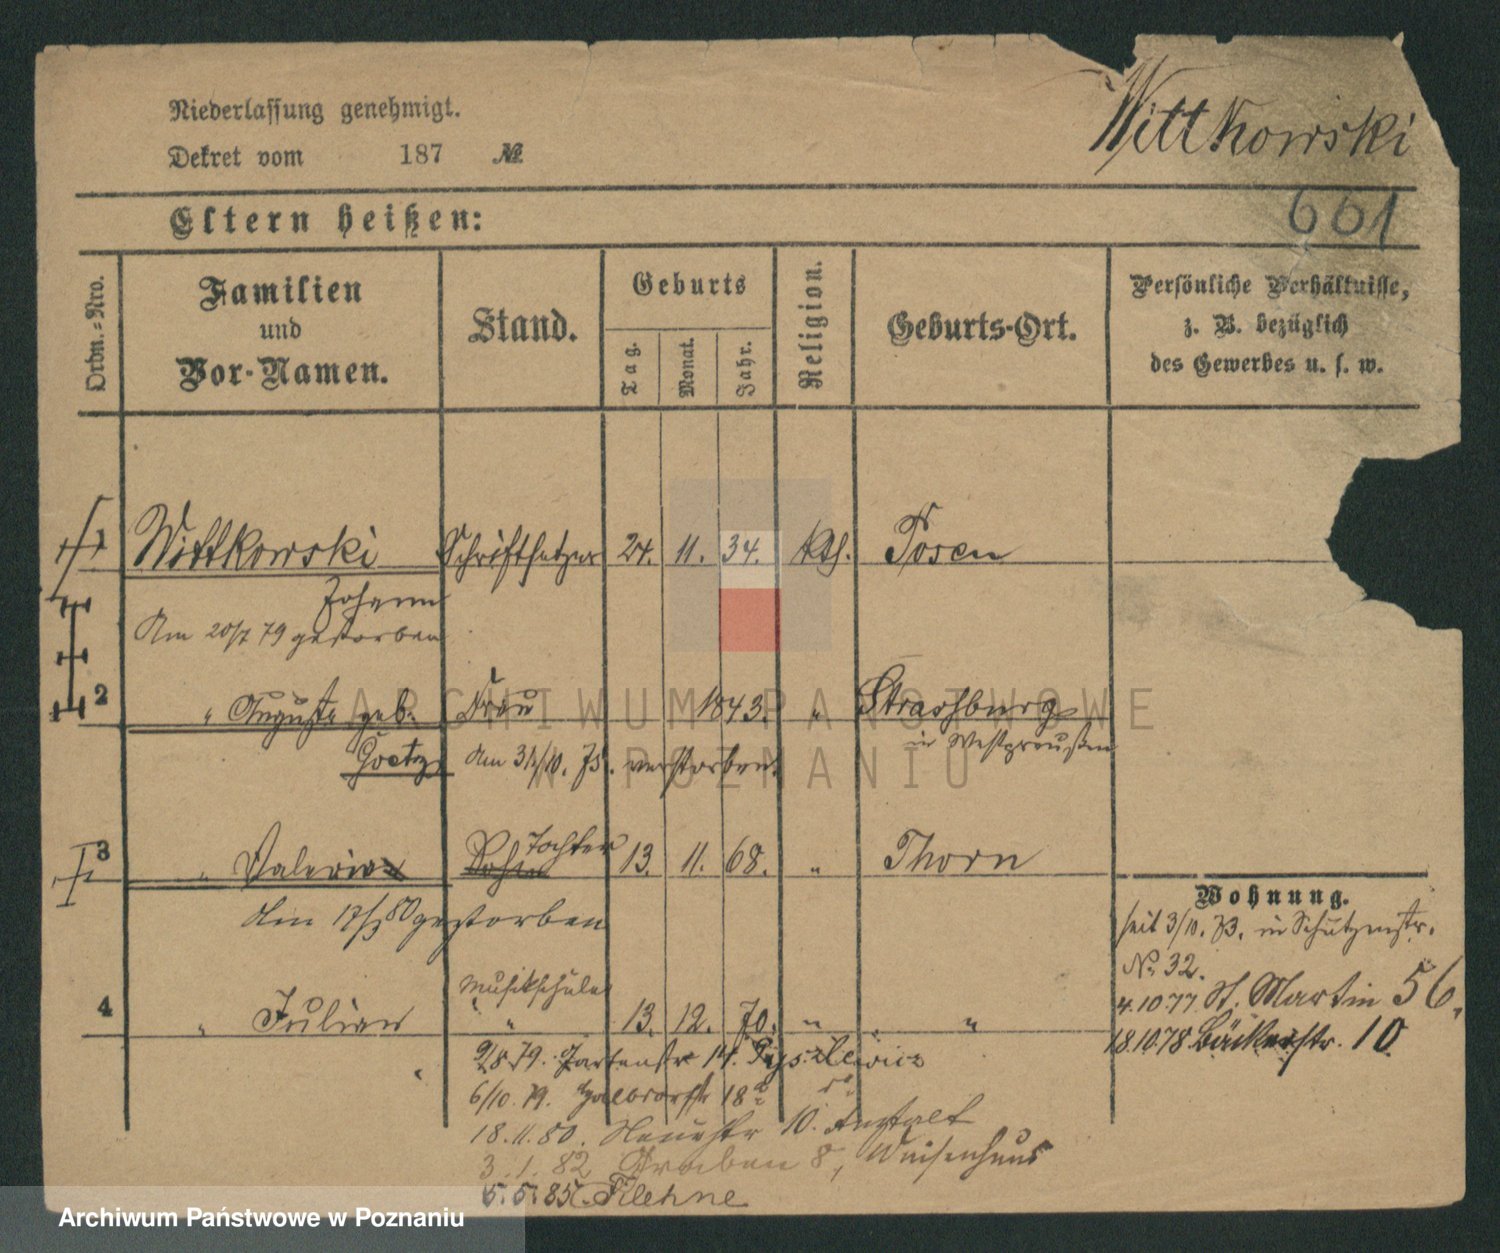 Wittkowski
Niederlassung genehmigt.
Dekret vom 187 №
661
Eltern heißen:
Ordn.=Nro.
Familien
und
Vor-Namen.
Stand.
Geburts
Tag.
Monat.
Jahr.
Religion.
Geburts-Ort.
Persönliche Verhältnisse,
z. B. bezüglich
des Gewerbes u. s. w.
1 Wittkowski Schriftsetzer 24. 11. 34. kth. Posen
Johann
Am 20/7 79 gestorben
2 " Auguste geb. Frau 1843. " Strasburg
in Westpreußen
Goetz Am 31/10. 75. verstorben.
Tochter
3 " Valeria Sohn 13. 11. 68. " Thorn
Am 17/3 80 gestorben
Wohnung.
seit 3/10. 73. in Schützenstr.
No. 32.
4.10 77 St. Martin 56,
18.10.78 Bäckerstr. 10
Musikschüler
4 " Julian " 13. 12. 70. " "
9/8 79. Gartenstr 14.
6/10. 79. Halbdorfstr 18
18.11.80. Neuestr 10. Anstalt
3.1.82 Graben 8, Waisenhaus
5.5.85. Filehne
ARCHIWUM PAŃSTWOWE
W POZNANIU
Archiwum Państwowe w Poznaniu